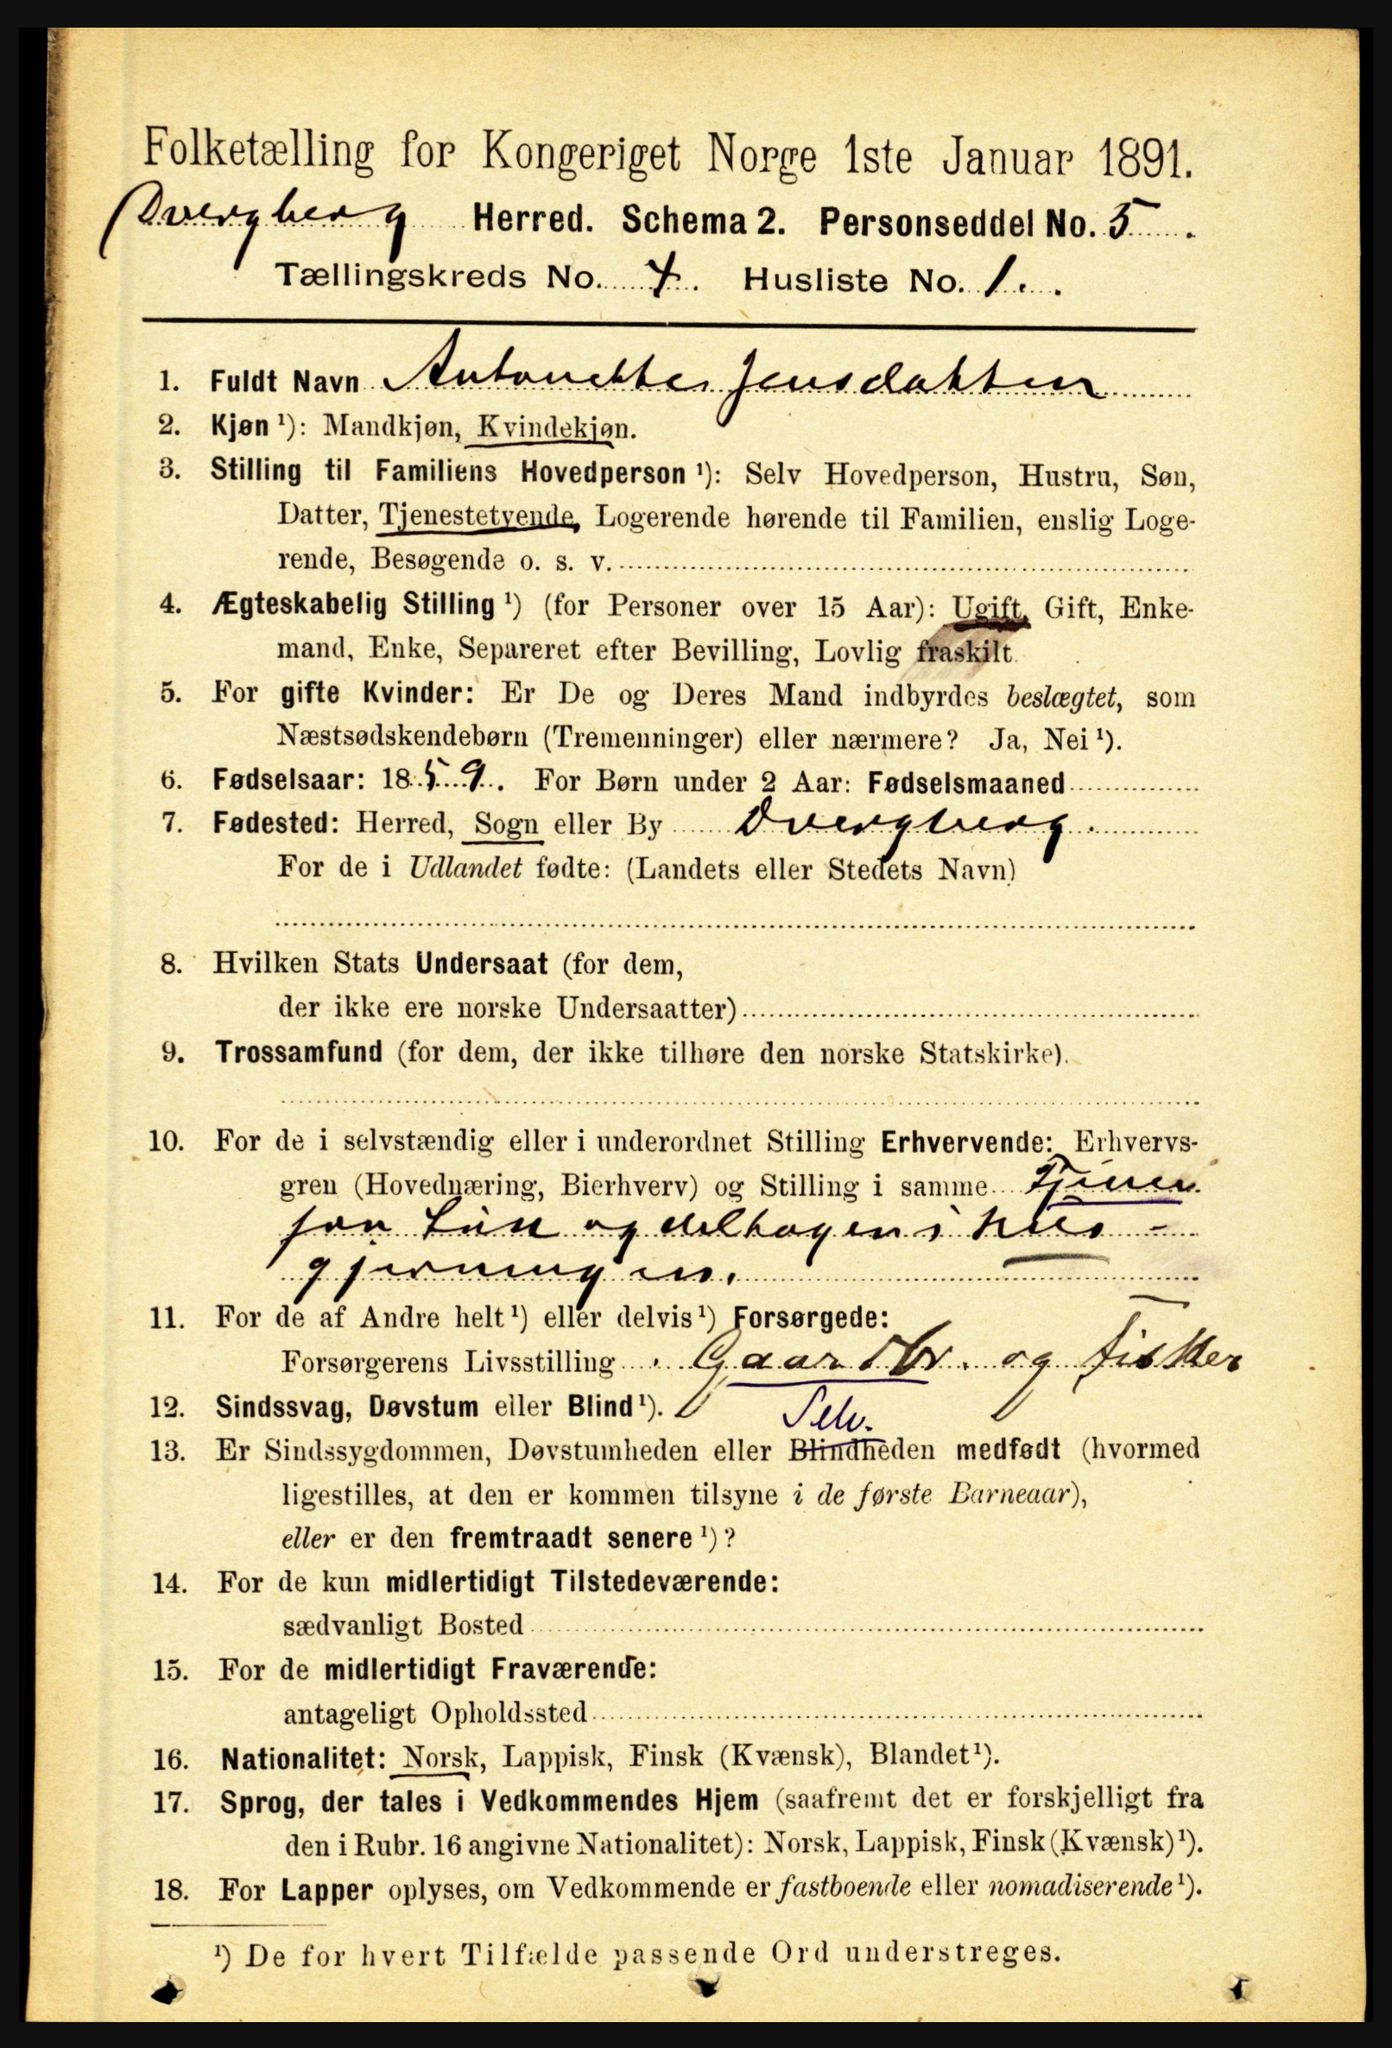 Folketælling for Kongeriget Norge 1ste Januar 1891.
Dvergberg Herred. Schema 2. Personseddel No. 5.
Tællingskreds No. 4. Husliste No. 1.
1. Fuldt Navn Antonette Jensdatter
2. Kjøn ¹): Mandkjøn, Kvindekjøn.
3. Stilling til Familiens Hovedperson ¹): Selv Hovedperson, Hustru, Søn,
Datter, Tjenestetyende, Logerende hørende til Familien, enslig Loge-
rende, Besøgende o. s. v.
4. Ægteskabelig Stilling ¹) (for Personer over 15 Aar): Ugift, Gift, Enke-
mand, Enke, Separeret efter Bevilling, Lovlig fraskilt.
5. For gifte Kvinder: Er De og Deres Mand indbyrdes beslægtet, som
Næstsødskendebørn (Tremenninger) eller nærmere? Ja, Nei ¹).
6. Fødselsaar: 1859. For Børn under 2 Aar: Fødselsmaaned
7. Fødested: Herred, Sogn eller By Dvergberg.
For de i Udlandet fødte: (Landets eller Stedets Navn)
8. Hvilken Stats Undersaat (for dem,
der ikke ere norske Undersaatter)
9. Trossamfund (for dem, der ikke tilhøre den norske Statskirke).
10. For de i selvstændig eller i underordnet Stilling Erhvervende: Erhvervs-
gren (Hovednæring, Bierhverv) og Stilling i samme Tjener
for Løn og deltagen i hus-
gjerningen.
11. For de af Andre helt ¹) eller delvis ¹) Forsørgede:
Forsørgerens Livsstilling Gaardbr. og Fisker
12. Sindssvag, Døvstum eller Blind ¹).
Selv.
13. Er Sindssygdommen, Døvstumheden eller Blindheden medfødt (hvormed
ligestilles, at den er kommen tilsyne i de første Barneaar),
eller er den fremtraadt senere ¹)?
14. For de kun midlertidigt Tilstedeværende:
sædvanligt Bosted
15. For de midlertidigt Fraværende:
antageligt Opholdssted
16. Nationalitet: Norsk, Lappisk, Finsk (Kvænsk), Blandet ¹).
17. Sprog, der tales i Vedkommendes Hjem (saafremt det er forskjelligt fra
den i Rubr. 16 angivne Nationalitet): Norsk, Lappisk, Finsk (Kvænsk) ¹).
18. For Lapper oplyses, om Vedkommende er fastboende eller nomadiserende ¹).
¹) De for hvert Tilfælde passende Ord understreges.